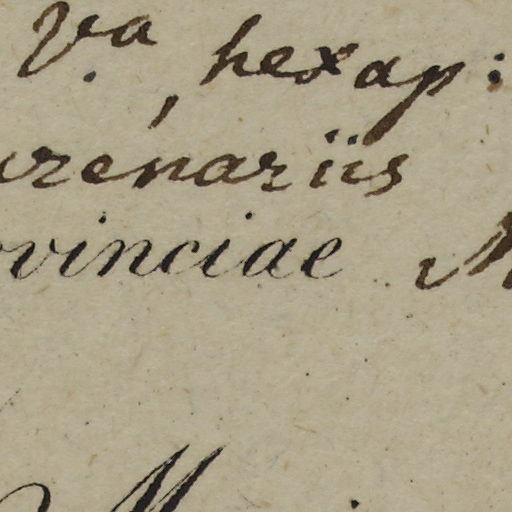 va, hexap:
arenariis
vinciae M
M